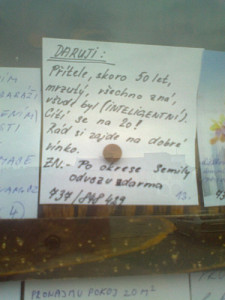 DARUJI:
Přítele, skoro 50 let,
mrzutý, všechno zná,
všude byl (INTELIGENTNÍ).
Cítí se na 20!
Rád si zajde na dobré
vínko.
ZN. - Po okrese Semily
odvozu zdarma
737/ 489
13.
PRONAJMU POKOJ 20M²